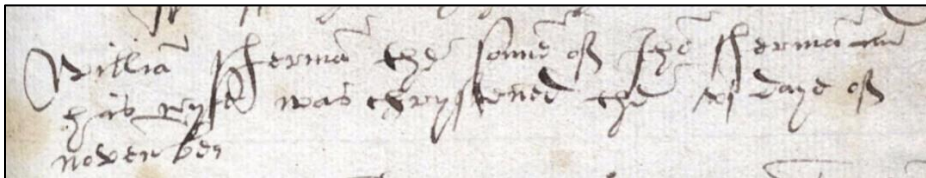 Willia ffermã the sonne off Jhõ ffermã
his wyfe was chrystened the xj daye off
november